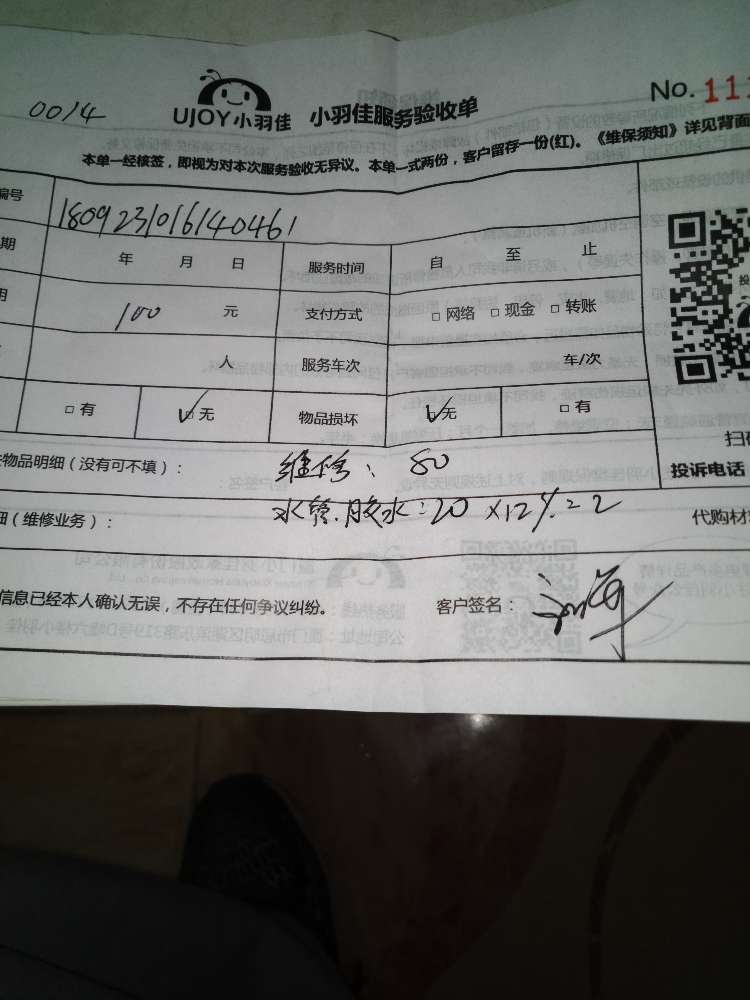 0014
UJOY小羽佳 小羽佳服务验收单 No. 111
本单一经核签，即视为对本次服务验收无异议。本单一式两份，客户留存一份(红)。《维保须知》详见背面
编号 180923016140461
期 年 月 日 服务时间 自 至 止
明 100 元 支付方式 □ 网络 □ 现金 □ 转账
人 服务车次 车/次
□ 有 ✓□ 无 物品损坏 ✓□ 无 □ 有
扫
物品明细（没有可不填）： 维修：80
投诉电话
（维修业务）： 水管.胶水：20 ×12%=2
代购材
信息已经本人确认无误，不存在任何争议纠纷。 客户签名：